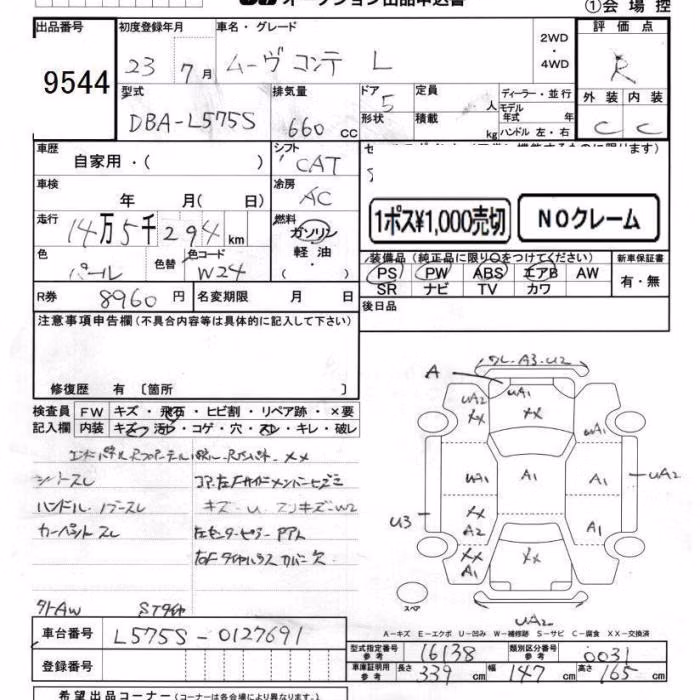 オークション出品申込書
①会場控
出品番号 初度登録年月 車名・グレード 2WD・4WD 評価点
9544 23 7月 ムーヴ コンテ L R
型式 排気量 ドア 定員 ディーラー・並行 外装 内装
DBA-L575S 660cc 5 人 モデル年式 年 C C
形状 積載 kg ハンドル 左・右
車歴 自家用・( ) シフト CAT
車検 年 月( 日) 冷房 AC
1ポス¥1,000売切 NOクレーム
走行 14万5千294km 燃料 ガソリン・軽油
色 パール 色替 色コード W24
装備品(純正品に限り○をつけてください) 新車保証書
PS PW ABS エアB AW 有・無
SR ナビ TV カワ
R券 8960円 名変期限 月 日 後日品
注意事項申告欄(不具合内容等は具体的に記入して下さい)
修復歴 有〔箇所 〕
検査員記入欄 FW キズ・飛石・ヒビ割・リペア跡・×要
内装 キズ・汚・コゲ・穴・スレ・キレ・破レ
シートスレ コア、左Fサイドメンバーヒズミ
ハンドル・ノブスレ キズ・U・スリキズ・W2
カーペットスレ 左センターピラーA
外AW STタイヤ
ワレ・A3・U2
A UA1
UA2 XX XX UA1
UA1 A1 A1 UA2
U3 XX A2 A1
XX A1 XX
スペア UA2
A-キズ E-エクボ U-凹み W-補修跡 S-サビ C-腐食 XX-交換済
車台番号 L575S-0127691
型式指定番号 参考 16138 類別区分番号 参考 0031
登録番号
車庫証明用 参考 長さ 339cm 幅 147cm 高さ 165cm
希望出品コーナー(コーナーは各会場により異なります。)